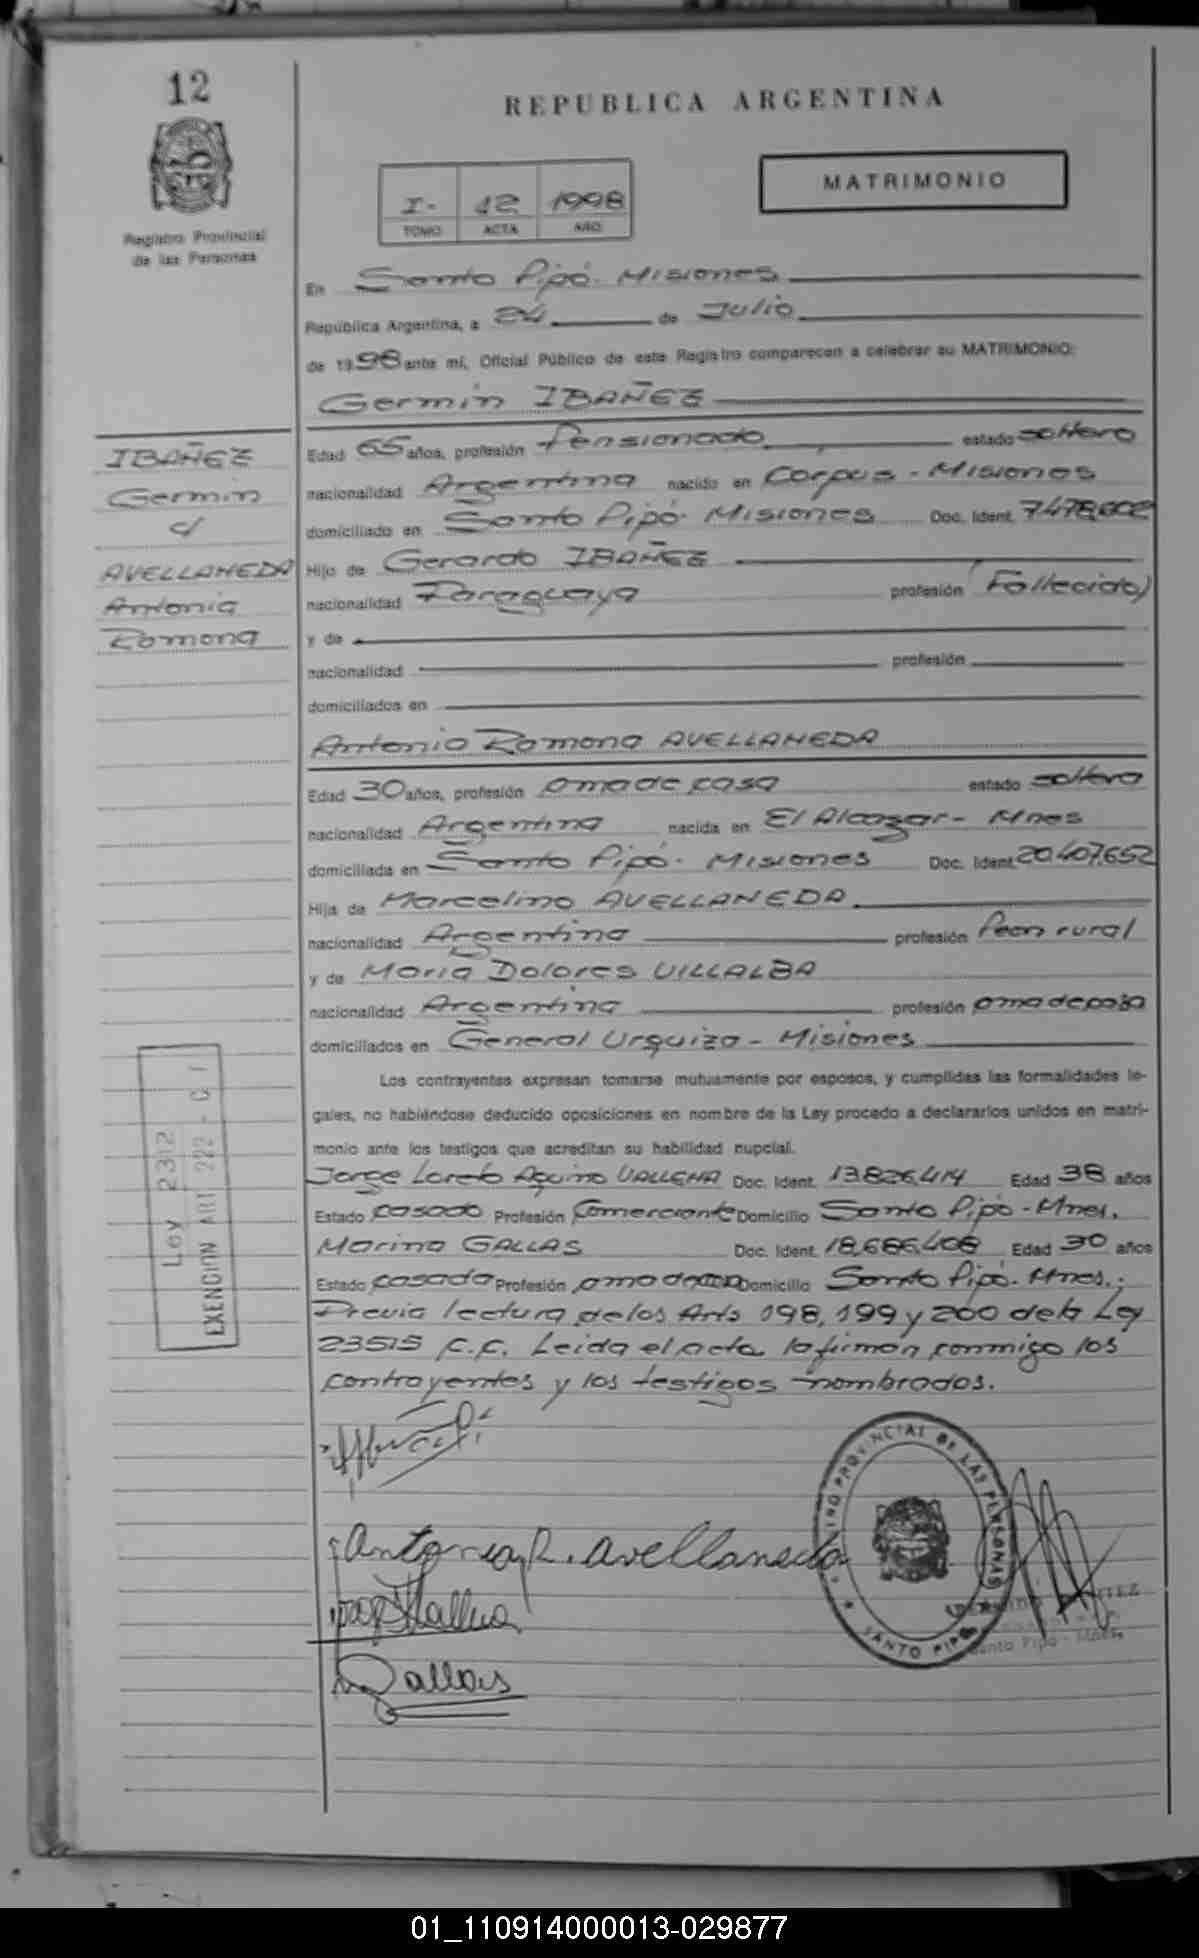 12
REPUBLICA ARGENTINA
I- 12 1998
TOMO ACTA AÑO
MATRIMONIO
Registro Provincial
de las Personas
En Santo Pipó - Misiones
República Argentina, a 24 de Julio
de 1998 ante mí, Oficial Público de este Registro comparecen a celebrar su MATRIMONIO:
Germín IBAÑEZ
Edad 65 años, profesión Pensionado estado soltero
nacionalidad Argentina nacido en Corpus - Misiones
domiciliado en Santo Pipó - Misiones Doc. Ident. 7.478.602
Hijo de Gerardo IBAÑEZ
nacionalidad Paraguaya profesión (Fallecido)
y de
nacionalidad profesión
domiciliados en
Antonia Ramona AVELLANEDA
Edad 30 años, profesión ama de casa estado soltera
nacionalidad Argentina nacida en El Alcazar - Mnes
domiciliada en Santo Pipó - Misiones Doc. Ident. 20.407.652
Hija de Marcelino AVELLANEDA
nacionalidad Argentina profesión Peon rural
y de Maria Dolores VILLALBA
nacionalidad Argentina profesión ama de casa
domiciliados en General Urquiza - Misiones
Los contrayentes expresan tomarse mutuamente por esposos, y cumplidas las formalidades le-
gales, no habiéndose deducido oposiciones en nombre de la Ley procedo a declararlos unidos en matri-
monio ante los testigos que acreditan su habilidad nupcial.
Jorge Loreto Aquino VALLENA Doc. Ident. 13.826.414 Edad 38 años
Estado casado Profesión Comerciante Domicilio Santo Pipó - Mnes.
Marina GALLAS Doc. Ident. 18.686.408 Edad 30 años
Estado casada Profesión ama de casa Domicilio Santo Pipó - Mnes.;
Previa lectura de los Arts 198, 199 y 200 de la Ley
23515 C.C. Leida el acta la firman conmigo los
contrayentes y los testigos nombrados.
IBAÑEZ
Germin
c/
AVELLANEDA
Antonia
Ramona
Ley 2312
EXENCION ART 222 - C I
Antonia R. Avellaneda
Gallas
REGISTRO PROVINCIAL DE LAS PERSONAS
SANTO PIPO
Santo Pipó - Mnes.
01_110914000013-029877